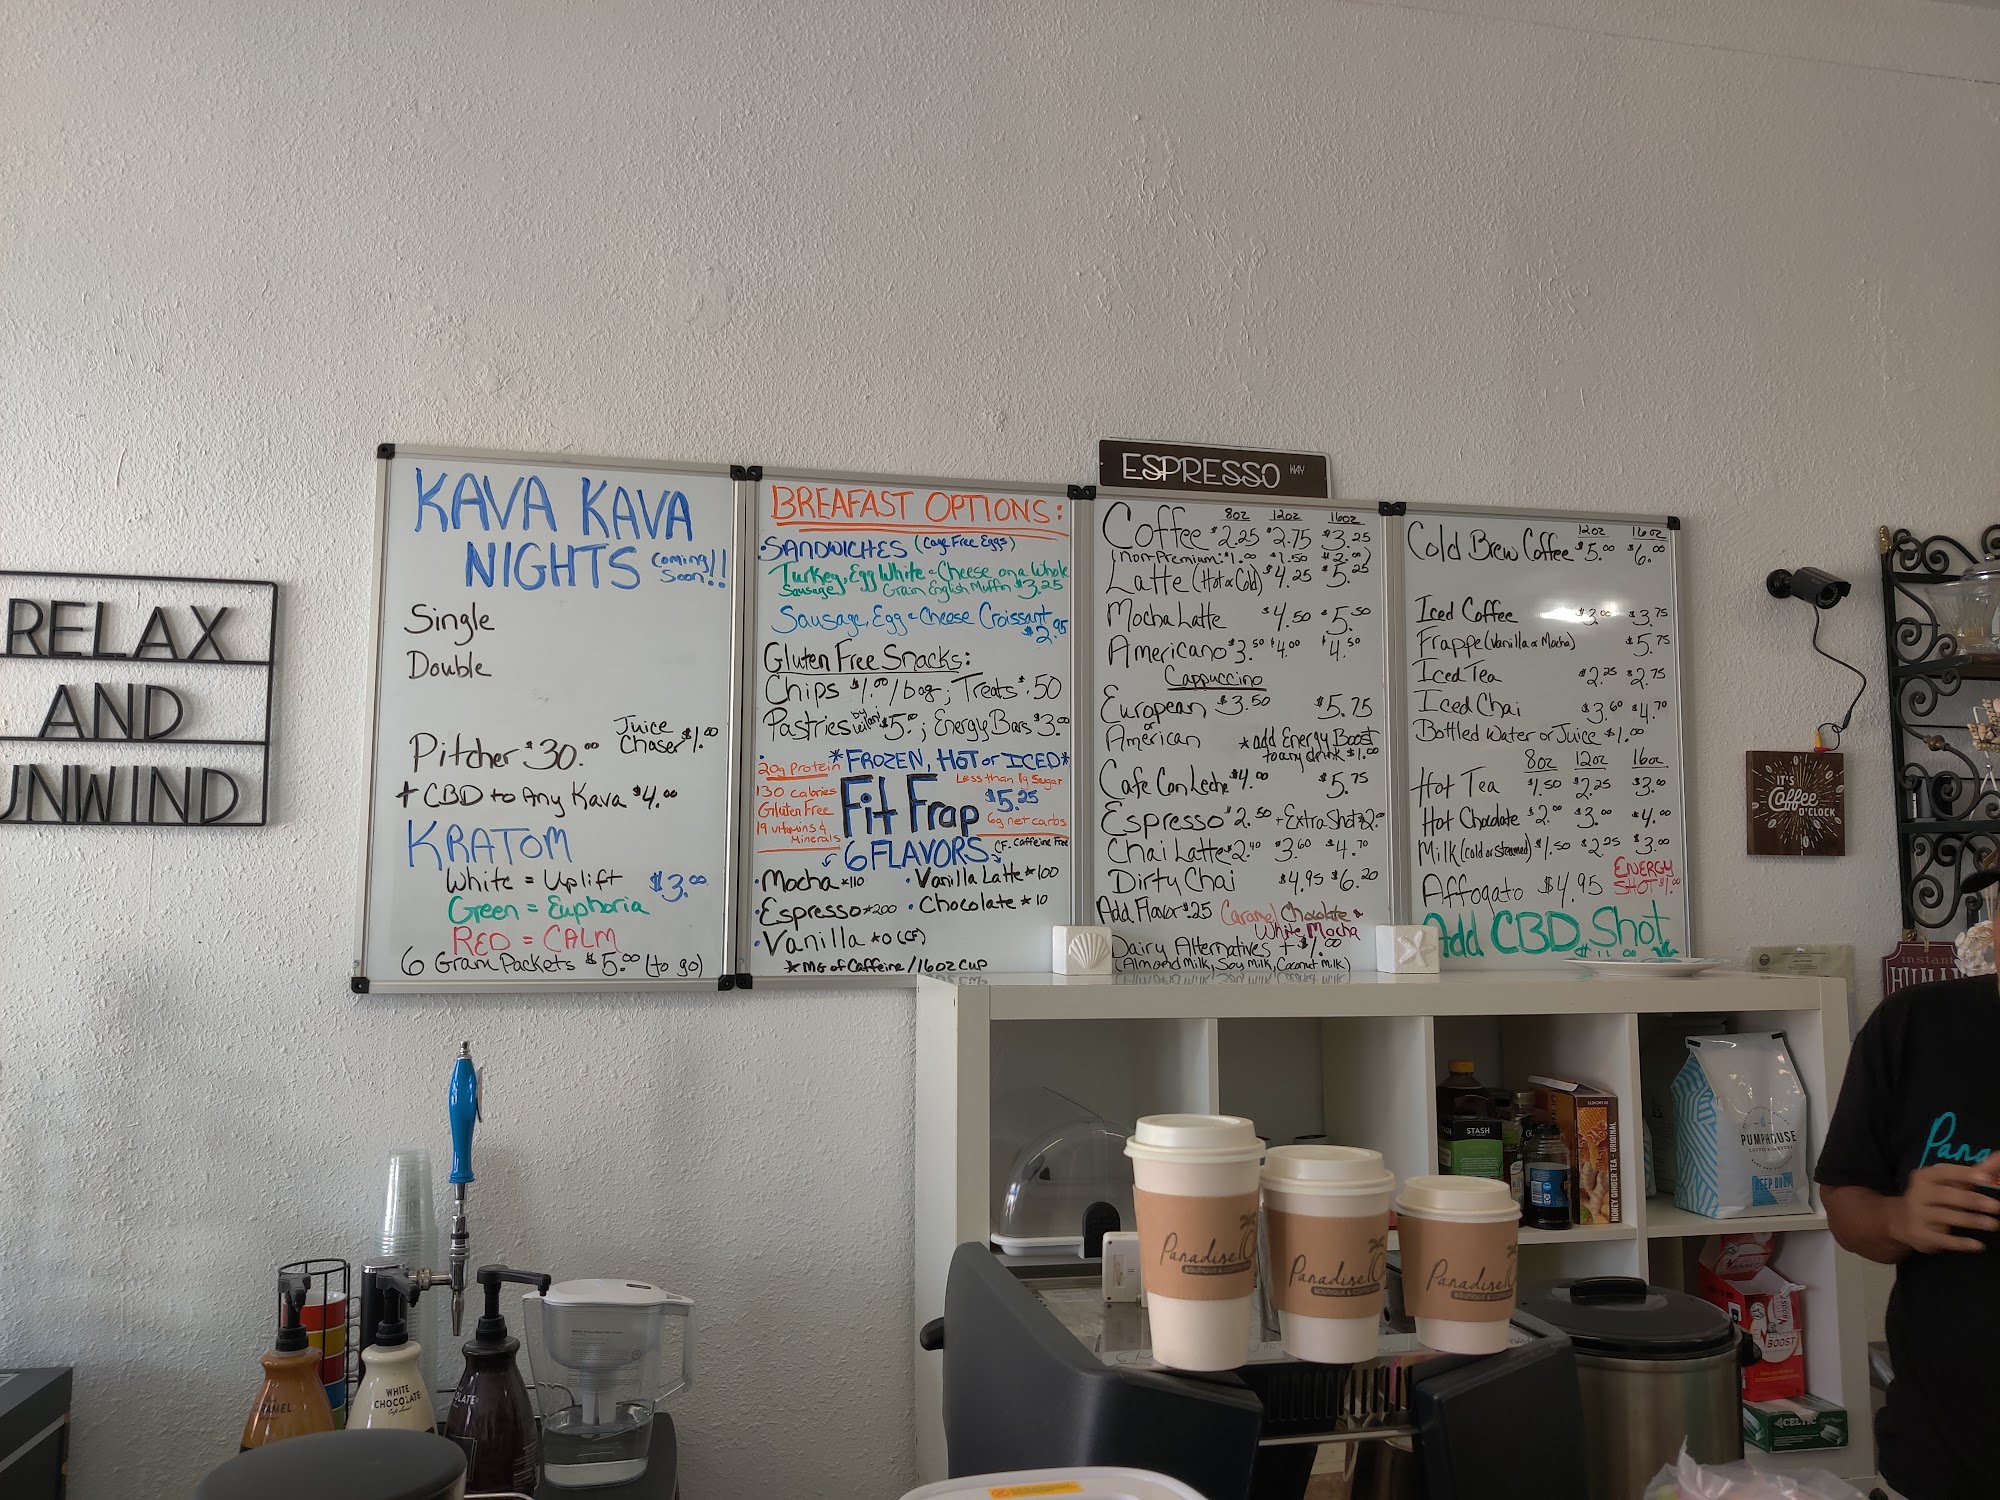 RELAX
AND
UNWIND
KAVA KAVA
NIGHTS (coming Soon!!
Single
Double
Juice
Pitcher $30.00 Chaser $1.00
+ CBD to Any Kava $4.00
KRATOM
White = Uplift $3.00
Green = Euphoria
RED = CALM
6 Gram Packets $5.00 (to go)
BREAFAST OPTIONS:
•SANDWICHES (Cage Free Eggs)
Turkey, Egg White + Cheese on a Whole
Sausage) Grain English Muffin $3.25
Sausage, Egg + Cheese Croissant
$2.95
Gluten Free Snacks:
Chips $1.00/bag; Treats $.50
Pastries by $5.00; Energy Bars $3.00
*FROZEN, HOT or ICED*
20g Protein
130 calories
Gluten Free
19 vitamins &
Minerals
Fit Frap
Less than 1g Sugar
$5.25
6g net carbs
CF. Caffeine Free
6 FLAVORS
•Mocha *110 •Vanilla Latte *100
•Espresso *200 •Chocolate *10
•Vanilla *0 (CF)
*MG of Caffeine/16oz CUP
ESPRESSO WAY
8oz 12oz 16oz
Coffee $2.25 $2.75 $3.25
(Non-Premium: $1.00 $1.50 $2.00)
Latte (Hot or Cold) $4.25 $5.25
Mocha Latte $4.50 $5.50
Americano $3.50 $4.00 $4.50
Cappuccino
European $3.50 $5.75
or
American *add Energy Boost
to any drink $1.00
Cafe Con Leche $4.00 $5.75
Espresso $2.50 + Extra Shot $2.00
Chai Latte $2.40 $3.60 $4.70
Dirty Chai $4.95 $6.20
Add Flavor $.25 Caramel Chocolate
White Mocha
Dairy Alternatives + $1.00
(Almond Milk, Soy Milk, Coconut Milk)
12oz 16oz
Cold Brew Coffee $5.00 $6.00
Iced Coffee $3.00 $3.75
Frappe (Vanilla or Mocha) $5.75
Iced Tea $2.25 $2.75
Iced Chai $3.60 $4.70
Bottled Water or Juice $1.00
8oz 12oz 16oz
Hot Tea $1.50 $2.25 $3.00
Hot Chocolate $2.00 $3.00 $4.00
Milk (cold or steamed) $1.50 $2.25 $3.00
Affogato $4.95 ENERGY
SHOT $1.00
Add CBD Shot
IT'S
Coffee
O'CLOCK
instant
HUMAN
STASH
HONEY GINGER TEA - ORIGINAL
PUMPHOUSE
COFFEE ROASTERS
DEEP DRIP
BOOST
CELTIC
Paradise
BOUTIQUE & COFFEE
Paradise
BOUTIQUE & COFFEE
Paradise
BOUTIQUE &
WHITE
CHOCOLATE